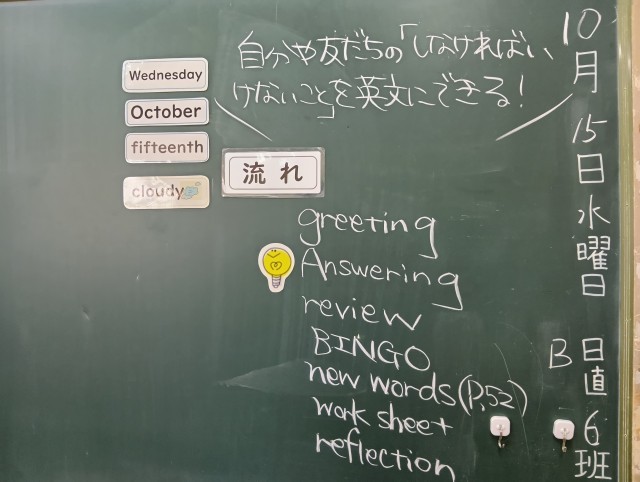 10月15日水曜日
B 日直 6班
自分や友だちの「しなければい
けないこと」を英文にできる!
Wednesday
October
fifteenth
cloudy
流れ
greeting
Answering
review
BINGO
new words (P.52)
work sheet
reflection